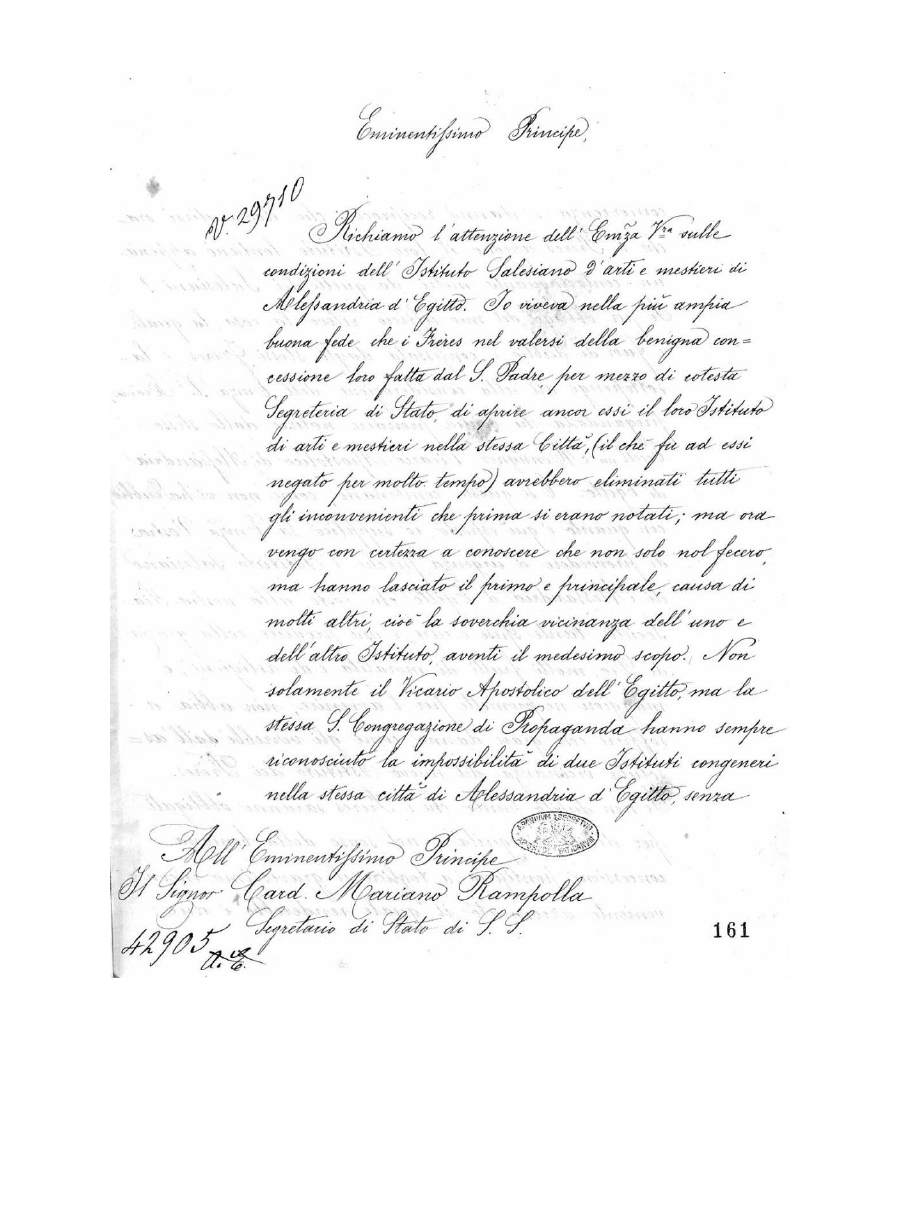 Eminentissimo Principe,
V. 29710
Richiamo l'attenzione dell'Em͠za Vra sulle
condizioni dell'Istituto Salesiano d'arti e mestieri di
Alessandria d'Egitto. Io viveva nella più ampia
buona fede che i Frères nel valersi della benigna con=
cessione loro fatta dal S. Padre, per mezzo di cotesta
Segreteria di Stato, di aprire ancor essi il loro Istituto
di arti e mestieri nella stessa Città, (il che fu ad essi
negato per molto tempo) avrebbero eliminati tutti
gli inconvenienti che prima si erano notati; ma ora
vengo con certezza a conoscere che non solo nol fecero,
ma hanno lasciato il primo e principale, causa di
molti altri, cioè la soverchia vicinanza dell'uno e
dell'altro Istituto, aventi il medesimo scopo. Non
solamente il Vicario Apostolico dell'Egitto, ma la
stessa S. Congregazione di Propaganda hanno sempre
riconosciuto la impossibilità di due Istituti congeneri
nella stessa città di Alessandria d'Egitto, senza
All'Eminentissimo Principe
Il Signor Card. Mariano Rampolla
Segretario di Stato di S. S.
42905
161